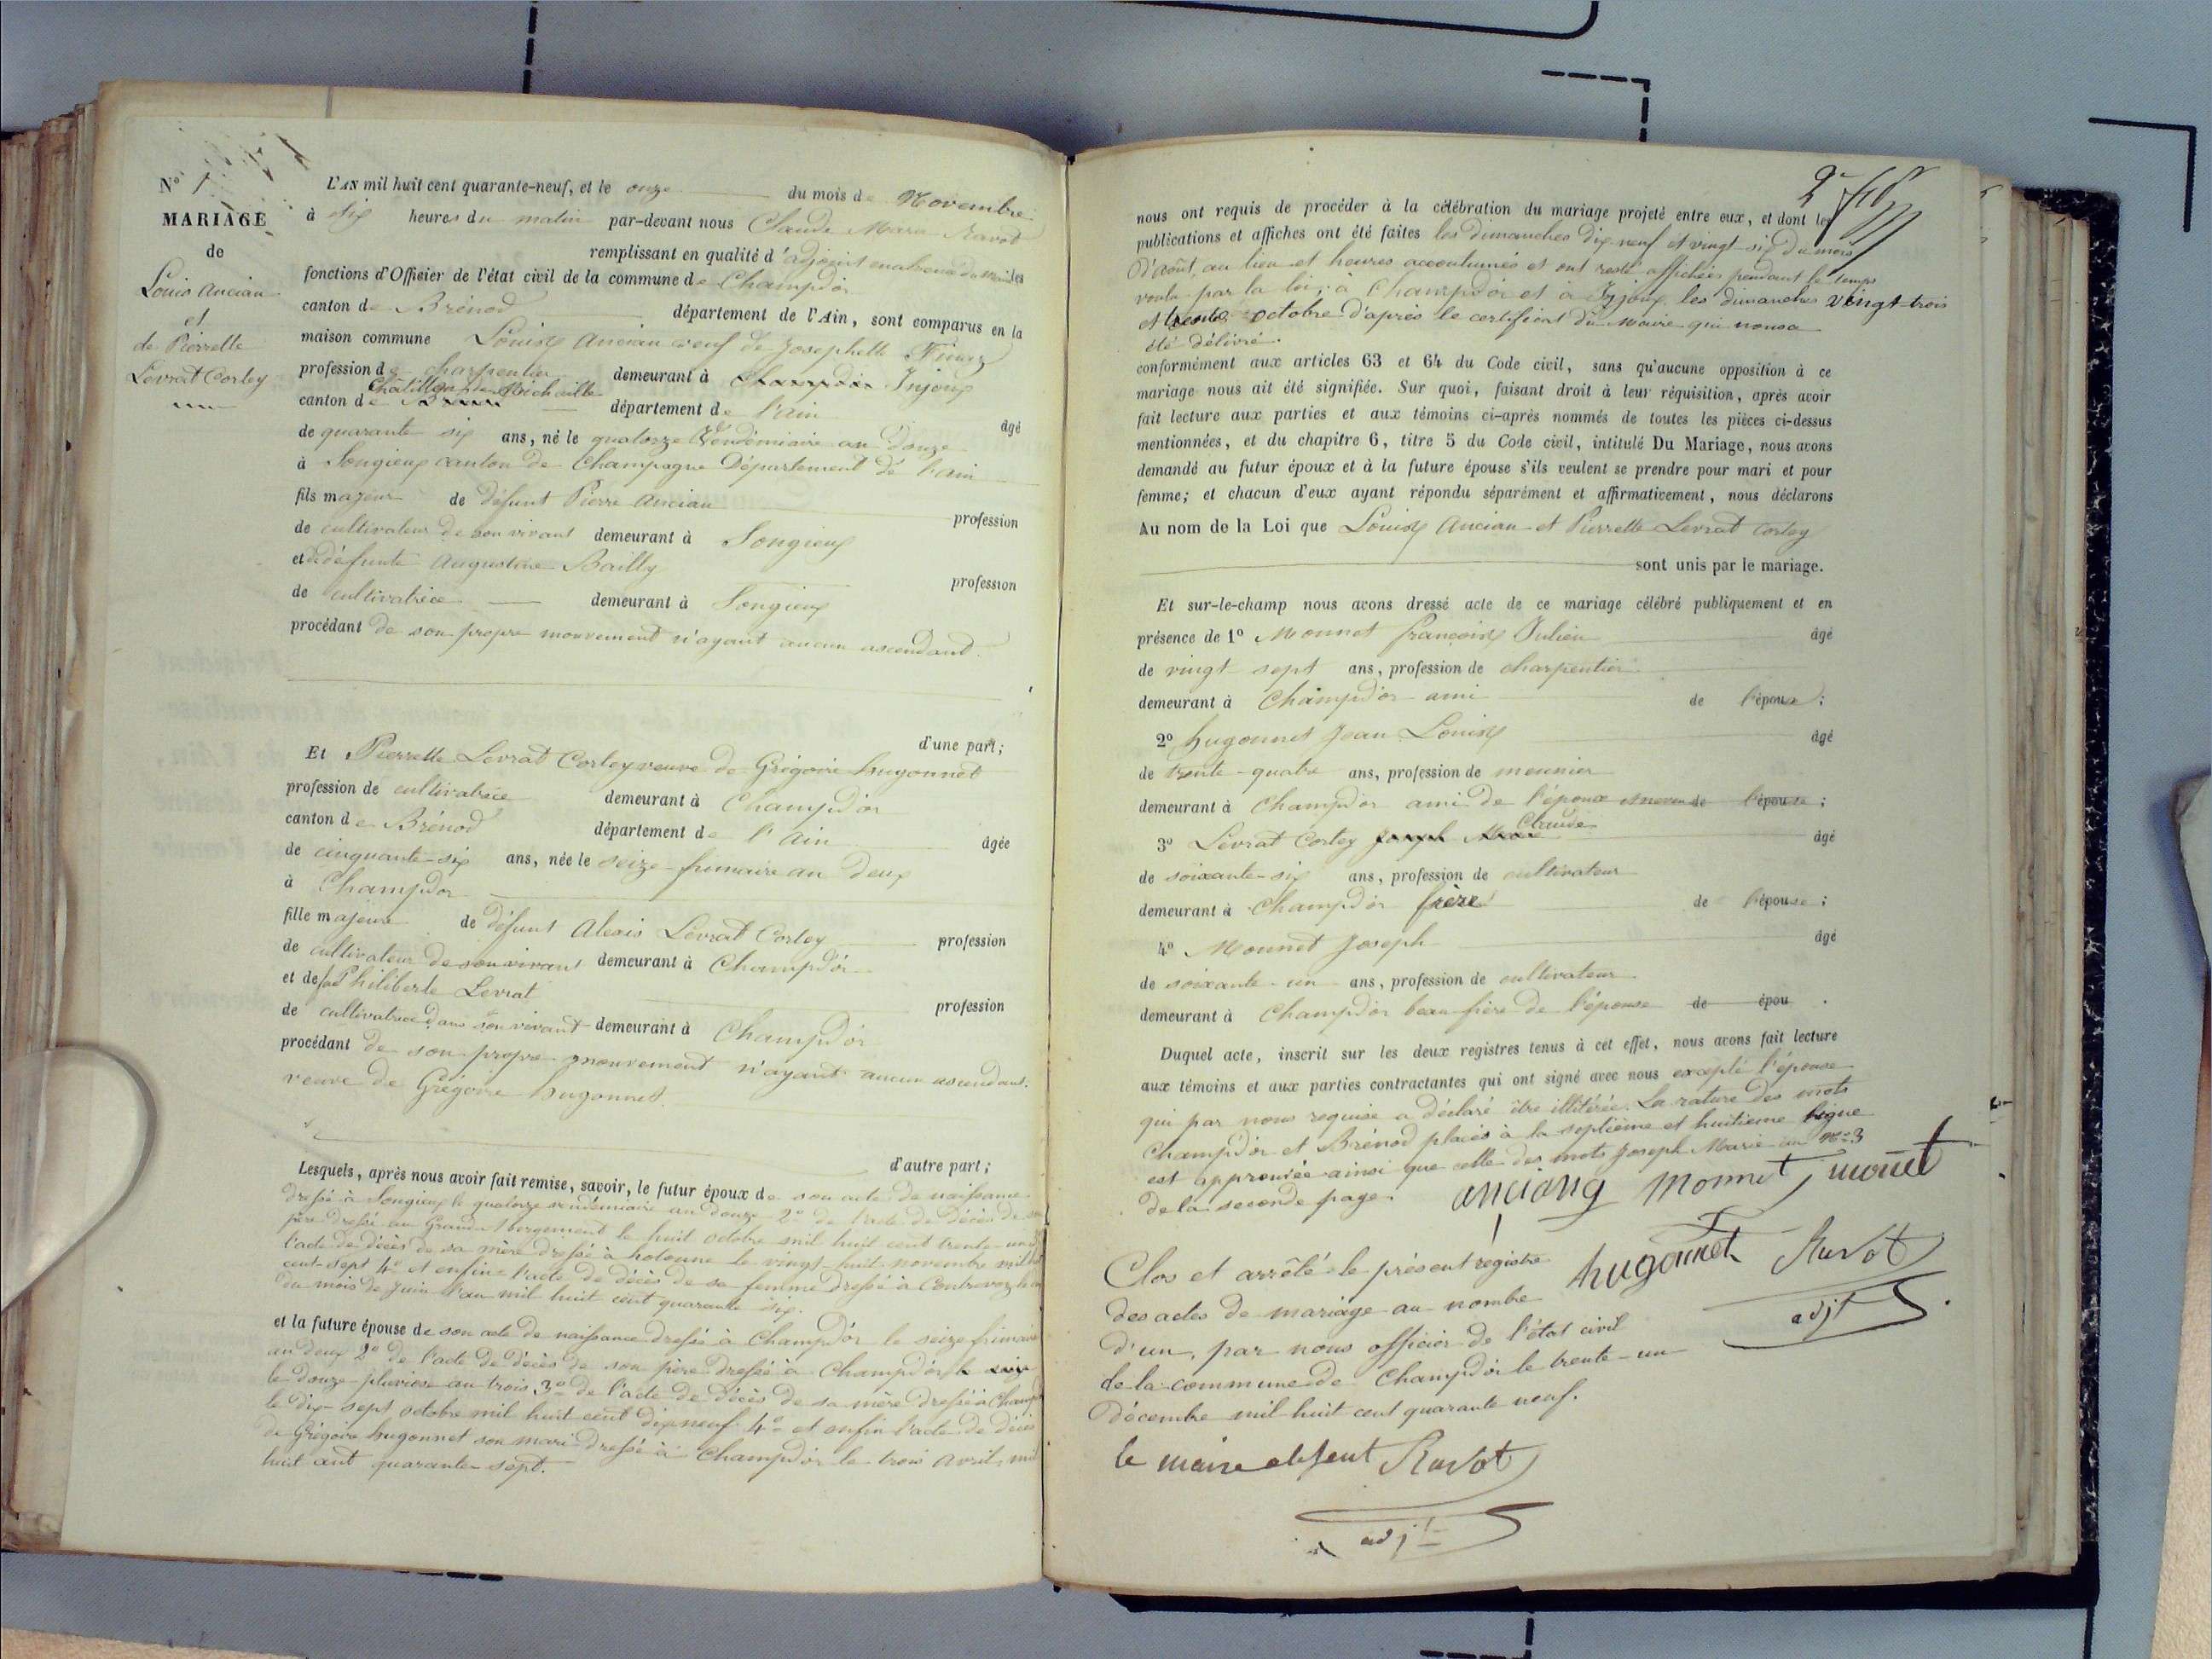 N° 1
MARIAGE
de
Louis Ancian
et
de Pierrette
Levrat Corley
L'AN mil huit cent quarante-neuf, et le onze du mois de Novembre
à dix heures du matin par-devant nous Claude Marie Ravot
remplissant en qualité d'adjoint en absence du Maire les
fonctions d'Officier de l'état civil de la commune de Champdor
canton de Brénod département de l'Ain, sont comparus en la
maison commune Louis Ancian veuf de Josephette
profession de charpentier demeurant à Champdor Injoux
Châtillon de Michaille
canton de Brénod département de l'ain âgé
de quarante six ans, né le quatorze Vendémiaire an douze
à Songieux canton de Champagne Département de l'ain
fils majeur de défunt Pierre Ancian profession
de cultivateur de son vivant demeurant à Songieux
et de défunte Augustine Bailly profession
de cultivatrice demeurant à Songieux
procédant de son propre mouvement n'ayant aucun ascendant.
d'une part;
Et Pierrette Levrat Corley veuve de Grégoire hugonnet
profession de cultivatrice demeurant à Champdor
canton de Brénod département de l'Ain âgée
de cinquante-six ans, née le seize frimaire an deux
à Champdor
fille majeure de défunt Alexis Levrat Corley profession
de cultivateur de son vivant demeurant à Champdor
et de Philiberte Levrat profession
de cultivatrice dans son vivant demeurant à Champdor
procédant de son propre mouvement n'ayant aucun ascendant.
veuve de Grégoire hugonnet
d'autre part;
Lesquels, après nous avoir fait remise, savoir, le futur époux de son acte de naissance
dressé à Songieux le quatorze vendémiaire an douze 2° de l'acte de décès de son
père dressé au Grand abergement le huit octobre mil huit cent trente un
l'acte de décès de sa mère dressé à hotonne le vingt-huit novembre mil huit
cent-sept 4° et enfin l'acte de décès de sa femme dressé à Contrevoz
du mois de juin l'an mil huit cent quarante six.
et la future épouse de son acte de naissance dressé à Champdor le seize frimaire
an deux 2° de l'acte de décès de son père dressé à Champdor le
le douze pluviose an trois 3° de l'acte de décès de sa mère dressé à Champdor
le dix-sept octobre mil huit cent dix neuf 4° et enfin l'acte de décès
de Grégoire hugonnet son mari dressé à Champdor le trois avril mil
huit cent quarante-sept.
nous ont requis de procéder à la célébration du mariage projeté entre eux, et dont les
publications et affiches ont été faites les dimanches dix neuf et vingt-six du mois
d'août, au lieu et heures accoutumés et ont resté affichées pendant le temps
voulu par la loi; à Champdor et à Injoux les dimanches vingt-trois
et trente octobre d'après le certificat du Maire qui nous a
été délivré.
conformément aux articles 63 et 64 du Code civil, sans qu'aucune opposition à ce
mariage nous ait été signifiée. Sur quoi, faisant droit à leur réquisition, après avoir
fait lecture aux parties et aux témoins ci-après nommés de toutes les pièces ci-dessus
mentionnées, et du chapitre 6, titre 5 du Code civil, intitulé Du Mariage, nous avons
demandé au futur époux et à la future épouse s'ils veulent se prendre pour mari et pour
femme; et chacun d'eux ayant répondu séparément et affirmativement, nous déclarons
Au nom de la Loi que Louis Ancian et Pierrette Levrat Corley
sont unis par le mariage.
Et sur-le-champ nous avons dressé acte de ce mariage célébré publiquement et en
présence de 1° Monnet françois Julien âgé
de vingt sept ans, profession de charpentier
demeurant à Champdor ami de l'épouse;
2° hugonnet Jean Louis âgé
de trente-quatre ans, profession de meunier
demeurant à Champdor ami de l'époux de l'épouse;
3° Levrat Corley Joseph Marie Claude âgé
de soixante-six ans, profession de cultivateur
demeurant à Champdor frère de l'épouse;
4° Monnet Joseph âgé
de soixante-un ans, profession de cultivateur
demeurant à Champdor beau frère de l'épouse de épou.
Duquel acte, inscrit sur les deux registres tenus à cet effet, nous avons fait lecture
aux témoins et aux parties contractantes qui ont signé avec nous excepté l'épouse
qui par nous requise a déclaré être illitérée. La rature des mots
Champdor et Brénod placés à la septième et huitième ligne
est approuvée ainsi que celle des mots Joseph Marie au N° 3
de la seconde page.
anciang monnet monet
hugonnet Ravot
adjt
Clos et arrêté le présent registre
des actes de mariage au nombre
d'un, par nous officier de l'état civil
de la commune de Champdor le trente-un
décembre mil huit cent quarante neuf.
le maire absent Ravot
adjt